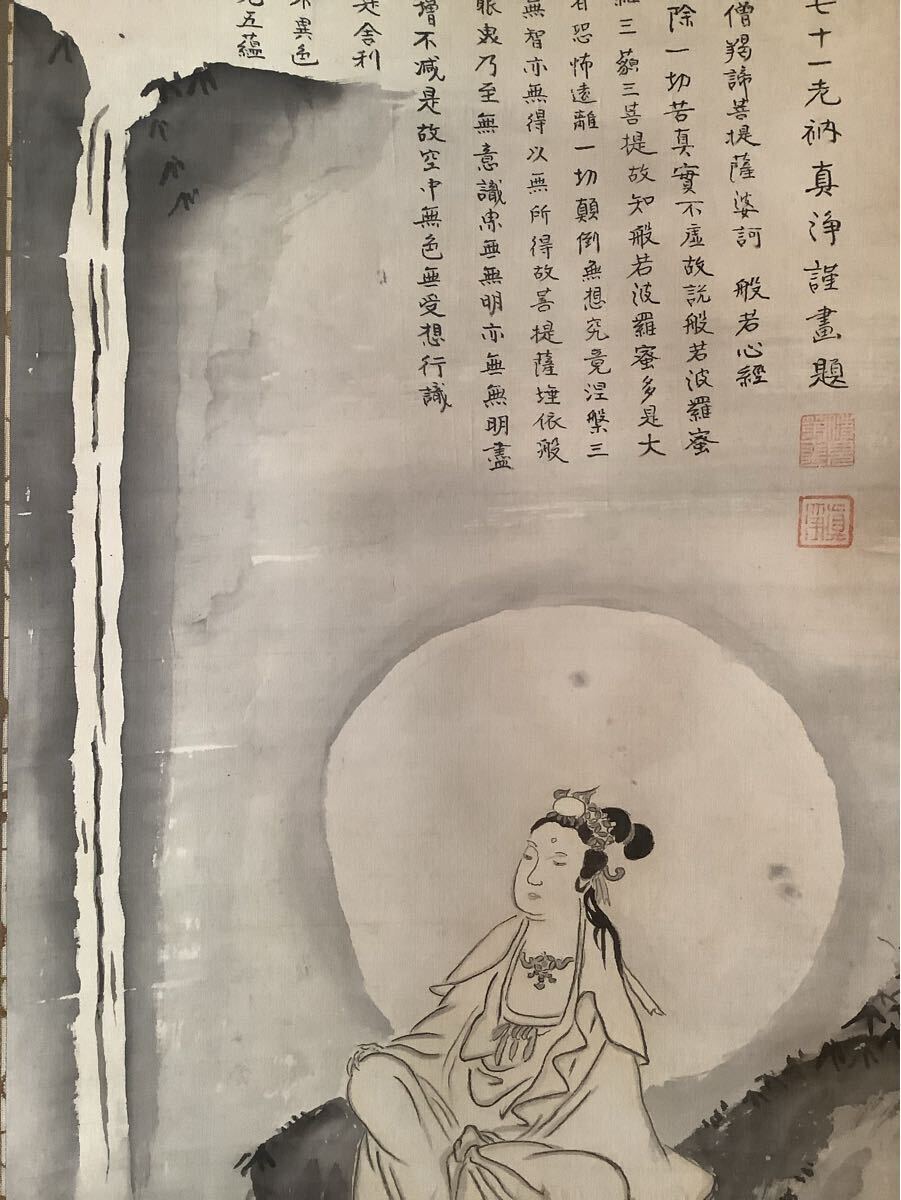 五蘊
異色
是舍利
增不減是故空中無色無受想行識
眼界乃至無意識界無無明亦無無明盡
無智亦無得以無所得故菩提薩埵依般
有恐怖遠離一切顛倒無想究竟涅槃三
三藐三菩提故知般若波羅蜜多是大
除一切苦真實不虛故說般若波羅蜜
僧羯諦菩提薩婆訶 般若心經
七十一老衲真淨謹畫題